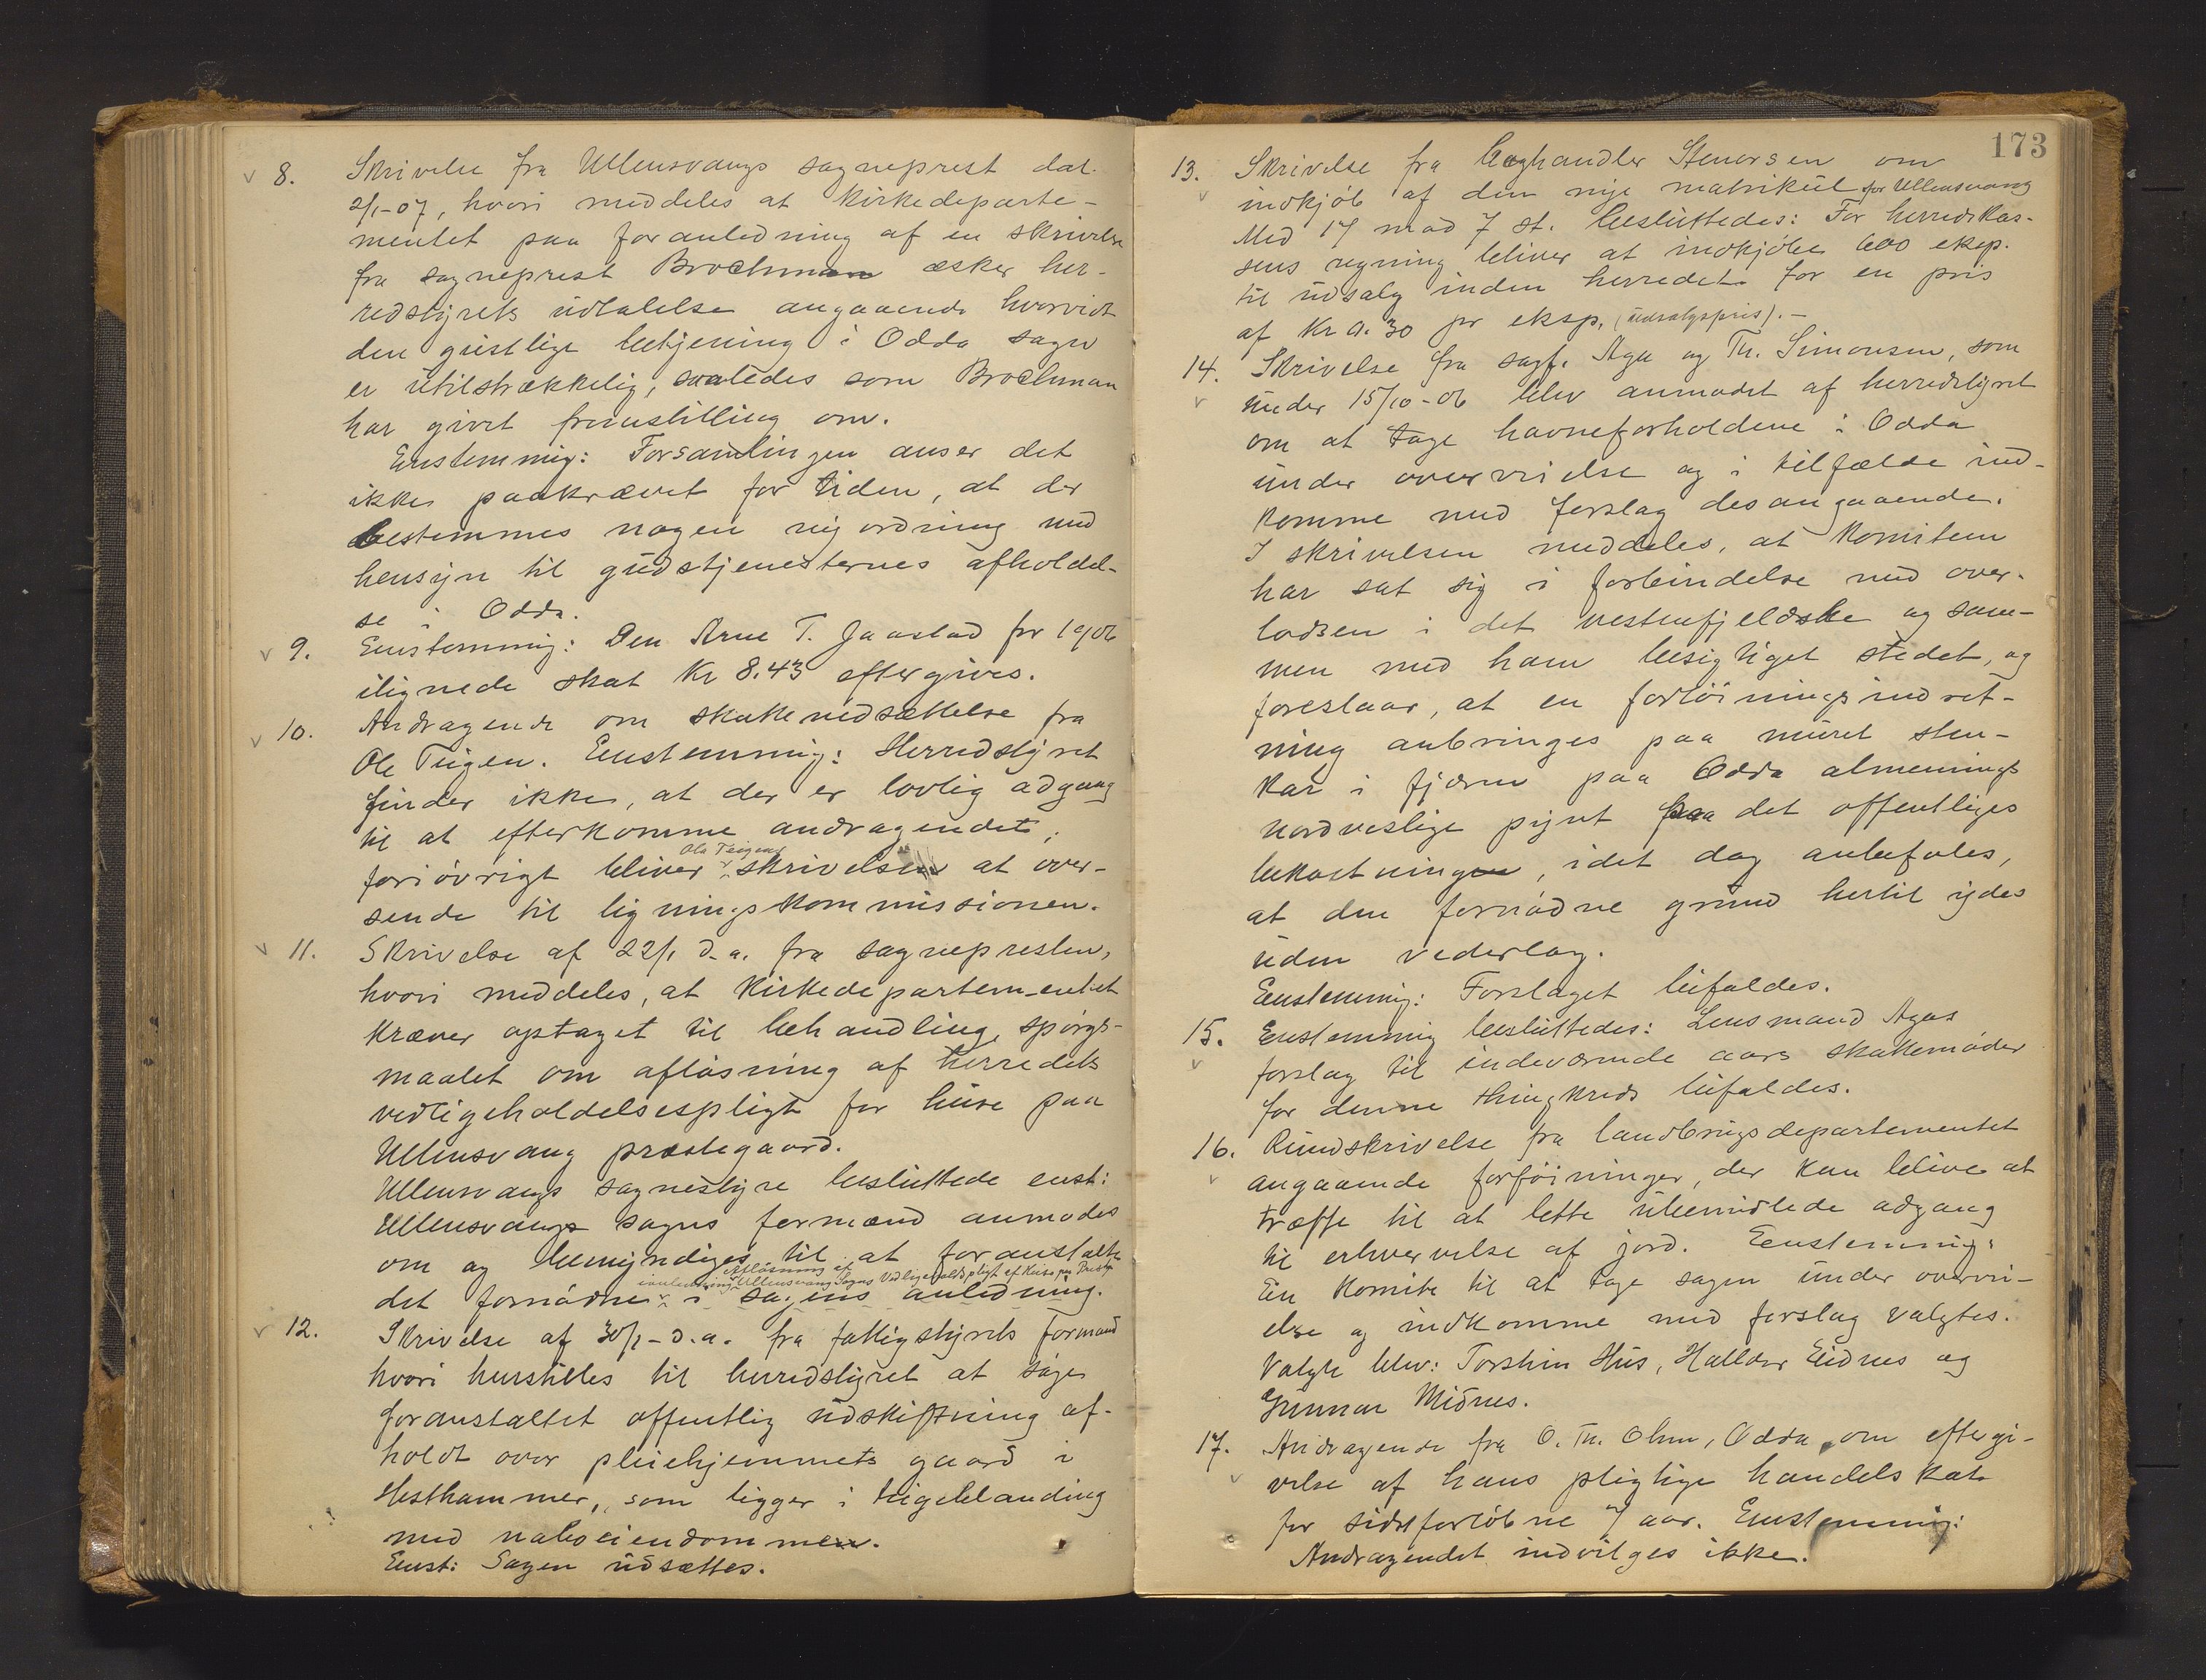 8. Skrivelse fra Ullensvangs sogneprest dat.
2/1-07, hvori meddeles at Kirkedeparte-
mentet paa foranledning af en skrivelse
fra sogneprest Brochman æsker her-
redstyrets udtalelse angaaende hvorvidt
den geistlige betjening i Odda sogn
er utilstrækkelig, saaledes som Brochman
har givet fremstilling om.
Enstemmig: Forsamlingen anser det
ikke paakrævet for tiden, at der
bestemmes nogen ny ordning med
hensyn til gudstjenesternes afholdel-
se i Odda.
9. Enstemmig: Den Arne T. Jaastad for 1906
ilignede skat Kr 8.43 eftergives.
10. Andragende om skattenedsættelse fra
Ole Teigen. Eenstemmig: Herredstyret
finder ikke, at der er lovlig adgang
til at efterkomme andragendet;
Ole Teigens
foriøvrigt bliver skrivelsen at over-
sende til ligningskommissionen.
11. Skrivelse af 22/1 d.a. fra sognepresten,
hvori meddeles, at Kirkedepartementet
kræver optaget til behandling spørgs-
maalet om afløsning af herredets
vedligeholdelsespligt for huse paa
Ullensvang præstegaard.
Ullensvangs sognestyre besluttede enst:
Ullensvangs sogns formand anmodes
om og bemyndiges til at foranstalte
Afløsning af
Ullensvang Sogns Vedligeholdspligt af Huse paa Prestg.
det fornødne i sagens anledning.
12. Skrivelse af 30/1-d.a. fra fattigstyrets formand
hvori henstilles til herredstyret at søge
foranstaltet offentlig udskiftning af-
holdt over pleiehjemmets gaard i
Hesthammer, som ligger i teigeblanding
med naboeiendommen.
Eenst: Sagen udsættes.
173
13. Skrivelse fra boghandler Stenersen om
indkjøb af den nye matrikül for Ullensvang
Med 17 mod 7 st. besluttedes: For herredskas-
sens regning bliver at indkjøbe 600 eksp.
til udsalg inden herredet for en pris
af Kr 0.30 pr eksp. (udsalgspris).-
14. Skrivelse fra sagf. Aga og Th. Simonsen, som
under 15/10-06 blev anmodet af herredstyret
om at tage havneforholdene i Odda
under overveielse og i tilfælde ind-
komme med forslag desangaaende.
I skrivelsen meddeles, at Komiteen
har sat sig i forbindelse med over-
lodsen i det vestenfjeldske og sam-
men med ham besigtiget stedet, og
foreslaar, at en fortøiningsindret-
ning anbringes paa muret sten-
kar i fjæren paa Odda almennings
nordvestlige pynt paa det offentliges
bekostning, idet dog anbefales,
at den fornødne grund hertil ydes
uden vederlag.
Eenstemmig: Forslaget bifaldes.
15. Enstemmig besluttedes: Lensmand Agas
forslag til indeværende aars skattemøder
for denne thingkreds bifaldes.
16. Rundskrivelse fra landbrugsdepartementet
angaaende forføininger, der kan blive at
træffe til at lette ubemidlede adgang
til erhvervelse af jord. Eenstemmig:
En Komite til at tage sagen under overvei-
else og indkomme med forslag valgtes.
Valgte blev: Torstein Hus, Halldor Eidnes og
Gunnar Midnes.
17. Andragende fra O. Th. Ohm, Odda, om eftergi-
velse af hans pligtige handelskat
for sidstforløbne 7 aar. Eenstemmig:
Andragendet indvilges ikke.